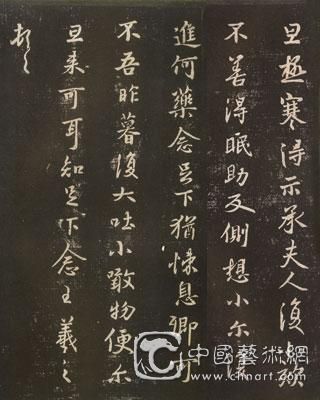 旦極寒得示承夫人復欬
不善得眠助反側想小尔復
進何藥念足下猶悚息卿可
不吾昨暮復大吐小噉物便尔
旦來可耳知足下念王羲之
頓首
中國藝術網
www.chnart.com